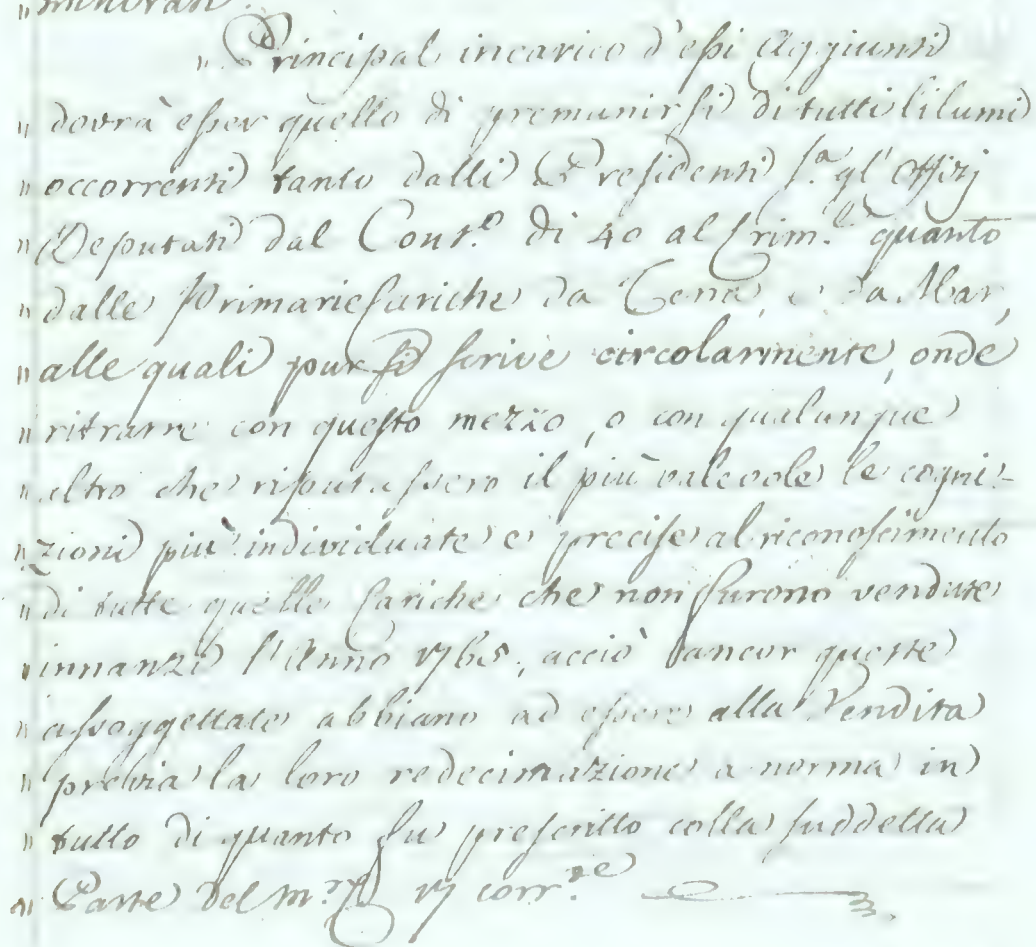 „ minorati.
„ Principal incarico d'essi Aggiunti
„ dovrà esser quello di premunirsi di tutti li lumi
„ occorrenti tanto dalli Presidenti s.ª gl'Offizj
„ Deputati dal Cons.º di 40 al Crim.l quanto
„ dalle Primarie Cariche da Terra, e da Mar,
„ alle quali pur si scrive circolarmente, onde
„ ritrarre con questo mezzo, o con qualunque
„ altro che riputassero il più valevole le cogni-
„ zioni più individuate e precise al riconoscimento
„ di tutte quelle Cariche che non furono vendute
„ innanzi l'Anno 1765, acciò ancor queste
„ assoggettate abbiano ad essere alla Vendita
„ previa la loro redecimazione a norma in
„ tutto di quanto fu prescritto colla suddetta
„ Parte del m.r C. 17 corr.te